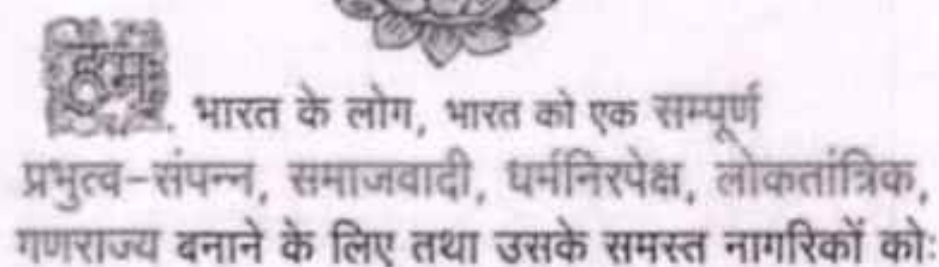 हम, भारत के लोग, भारत को एक सम्पूर्ण
प्रभुत्व-संपन्न, समाजवादी, धर्मनिरपेक्ष, लोकतांत्रिक,
गणराज्य बनाने के लिए तथा उसके समस्त नागरिकों को: